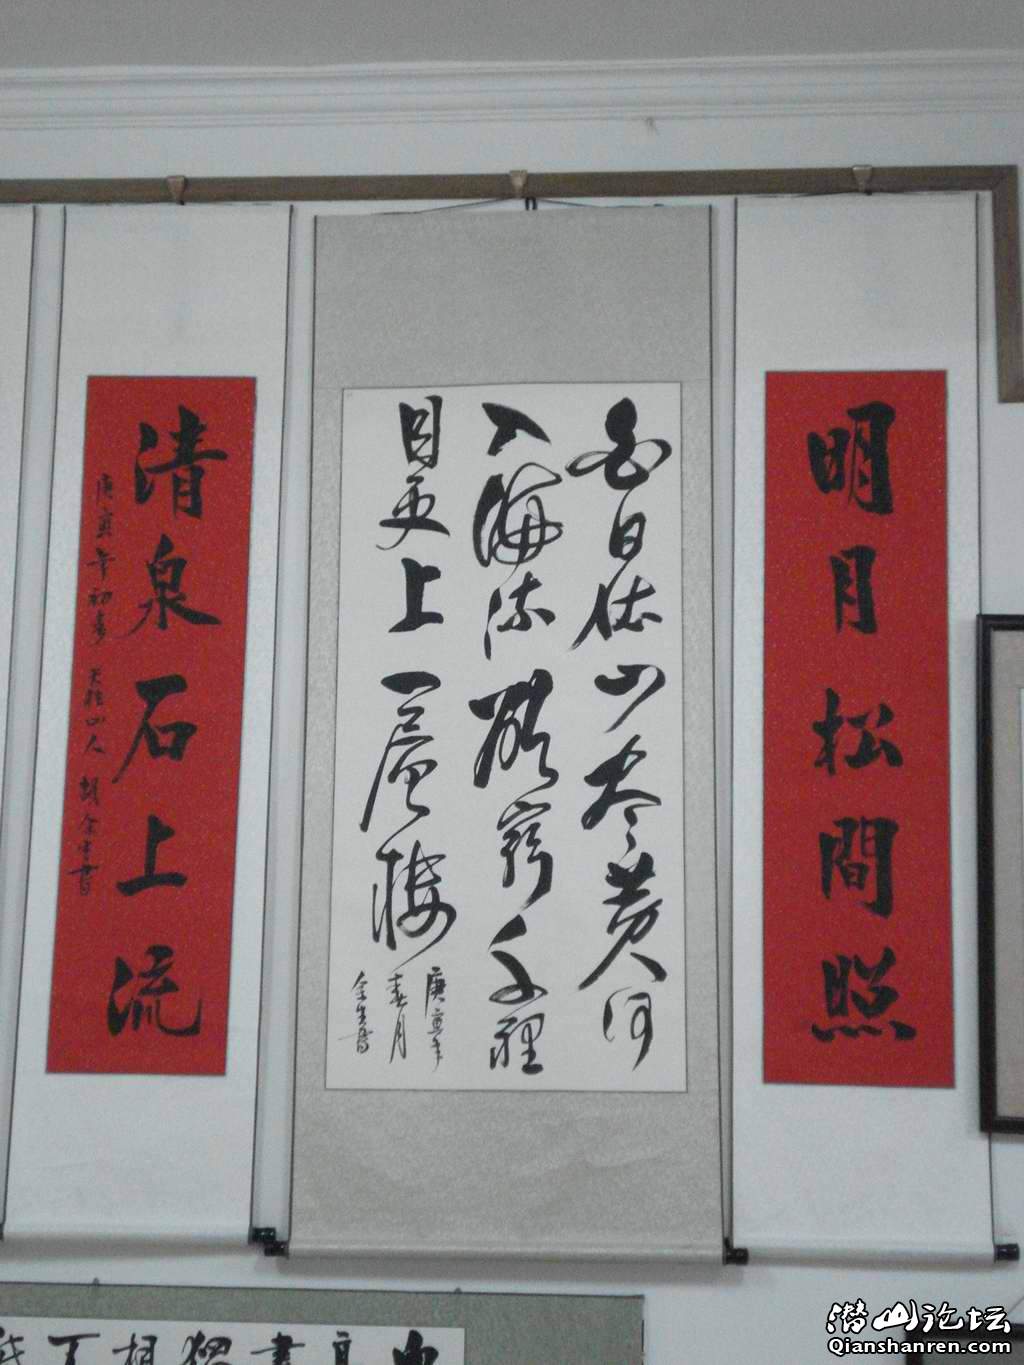 明月松間照
白日依山尽黄河
入海流欲窮千里
目更上一层樓
庚寅年
春月
余生書
清泉石上流
庚寅年初春 天柱山人 胡余生書
潜山论坛
Qianshanren.com